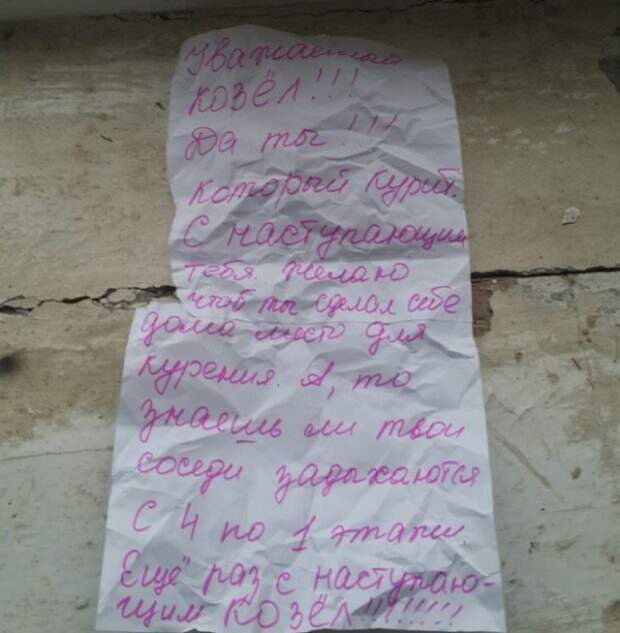 Уважаемый
козёл!!!
Да ты!!!
который курит.
С наступающим
тебя. Желаю
чтоб ты сделал себе
дома место для
курения. А, то
знаешь ли твои
соседи задыхаются
с 4 по 1 этажи.
Ещё раз с наступаю-
щим КОЗЁЛ!!!!!!!!